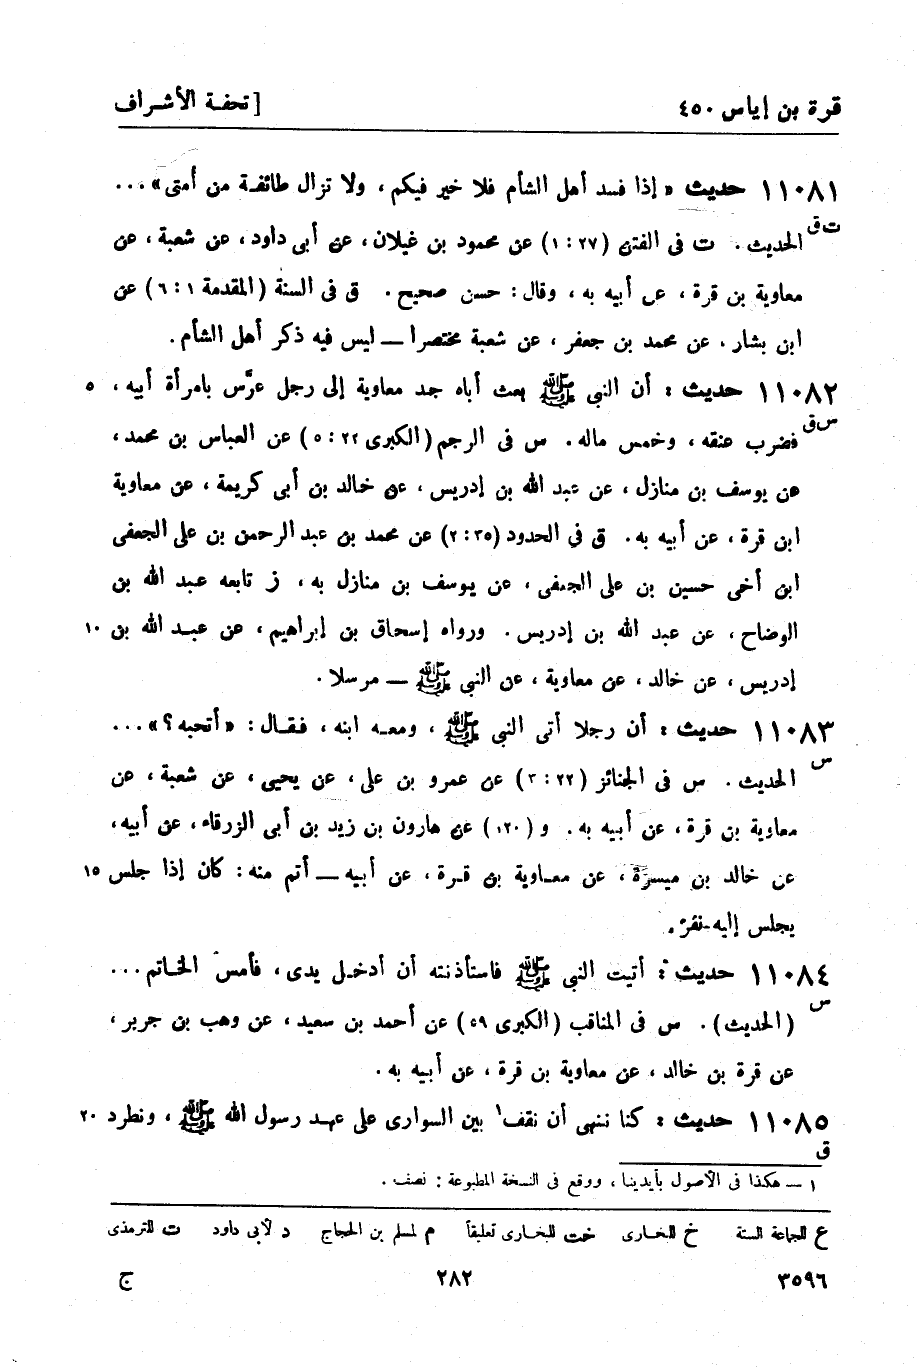 قرة بن إياس ٤٥٠ [ تحفة الأشراف
١١٠٨١ حديث « إذا فسد أهل الشأم فلا خير فيكم ، ولا تزال طائفة من أمتى » ...
ت ق الحديث . ت فى الفتن (٢٧ : ١) عن محمود بن غيلان ، عن أبى داود ، عن شعبة ، عن
معاوية بن قرة ، عن أبيه به ، وقال : حسن صحيح . ق فى السنة (المقدمة ١ : ٦) عن
ابن بشار ، عن محمد بن جعفر ، عن شعبة مختصرا — ليس فيه ذكر أهل الشأم .
١١٠٨٢ حديث : أن النبي ﷺ بعث أباه جد معاوية إلى رجل عرّس بامرأة أبيه ، ٥
س ق فضرب عنقه ، وخمس ماله . س فى الرجم (الكبرى ٢٢ : ٥) عن العباس بن محمد ،
عن يوسف بن منازل ، عن عبد الله بن إدريس ، عن خالد بن أبى كريمة ، عن معاوية
ابن قرة ، عن أبيه به . ق في الحدود (٣٥ : ٢) عن محمد بن عبد الرحمن بن على الجعفى
ابن أخى حسين بن على الجعفى ، عن يوسف بن منازل به ، ز تابعه عبد الله بن
الوضاح ، عن عبد الله بن إدريس . ورواه إسحاق بن إبراهيم ، عن عبد الله بن ١٠
إدريس ، عن خالد ، عن معاوية ، عن النبي ﷺ — مرسلا .
١١٠٨٣ حديث : أن رجلا أتى النبي ﷺ ، ومعه ابنه ، فقال : « أتحبه ؟ » ...
س الحديث . س فى الجنائز (٢٢ : ٣) عن عمرو بن على ، عن يحيى ، عن شعبة ، عن
معاوية بن قرة ، عن أبيه به . و (١٢٠) عن هارون بن زيد بن أبى الزرقاء ، عن أبيه ،
عن خالد بن ميسرة ، عن معاوية بن قرة ، عن أبيه — أتم منه : كان إذا جلس ١٥
يجلس إليه نفر .
١١٠٨٤ حديث : أتيت النبي ﷺ فاستأذنته أن أدخل يدى ، فأمس الخاتم ...
س (الحديث) . س فى المناقب (الكبرى ٥٩) عن أحمد بن سعيد ، عن وهب بن جرير ،
عن قرة بن خالد ، عن معاوية بن قرة ، عن أبيه به .
١١٠٨٥ حديث : كنا ننهى أن نقف١ بين السوارى على عهد رسول الله ﷺ ، ونطرد ٢٠
ق
١ — هكذا فى الأصول بأيدينا ، ووقع فى النسخة المطبوعة : نصف .
ع للجماعة الستة خ للبخارى خت للبخارى تعليقاً م لمسلم بن الحجاج د لأبى داود ت للترمذى
٣٥٩٦ ٢٨٢ ج